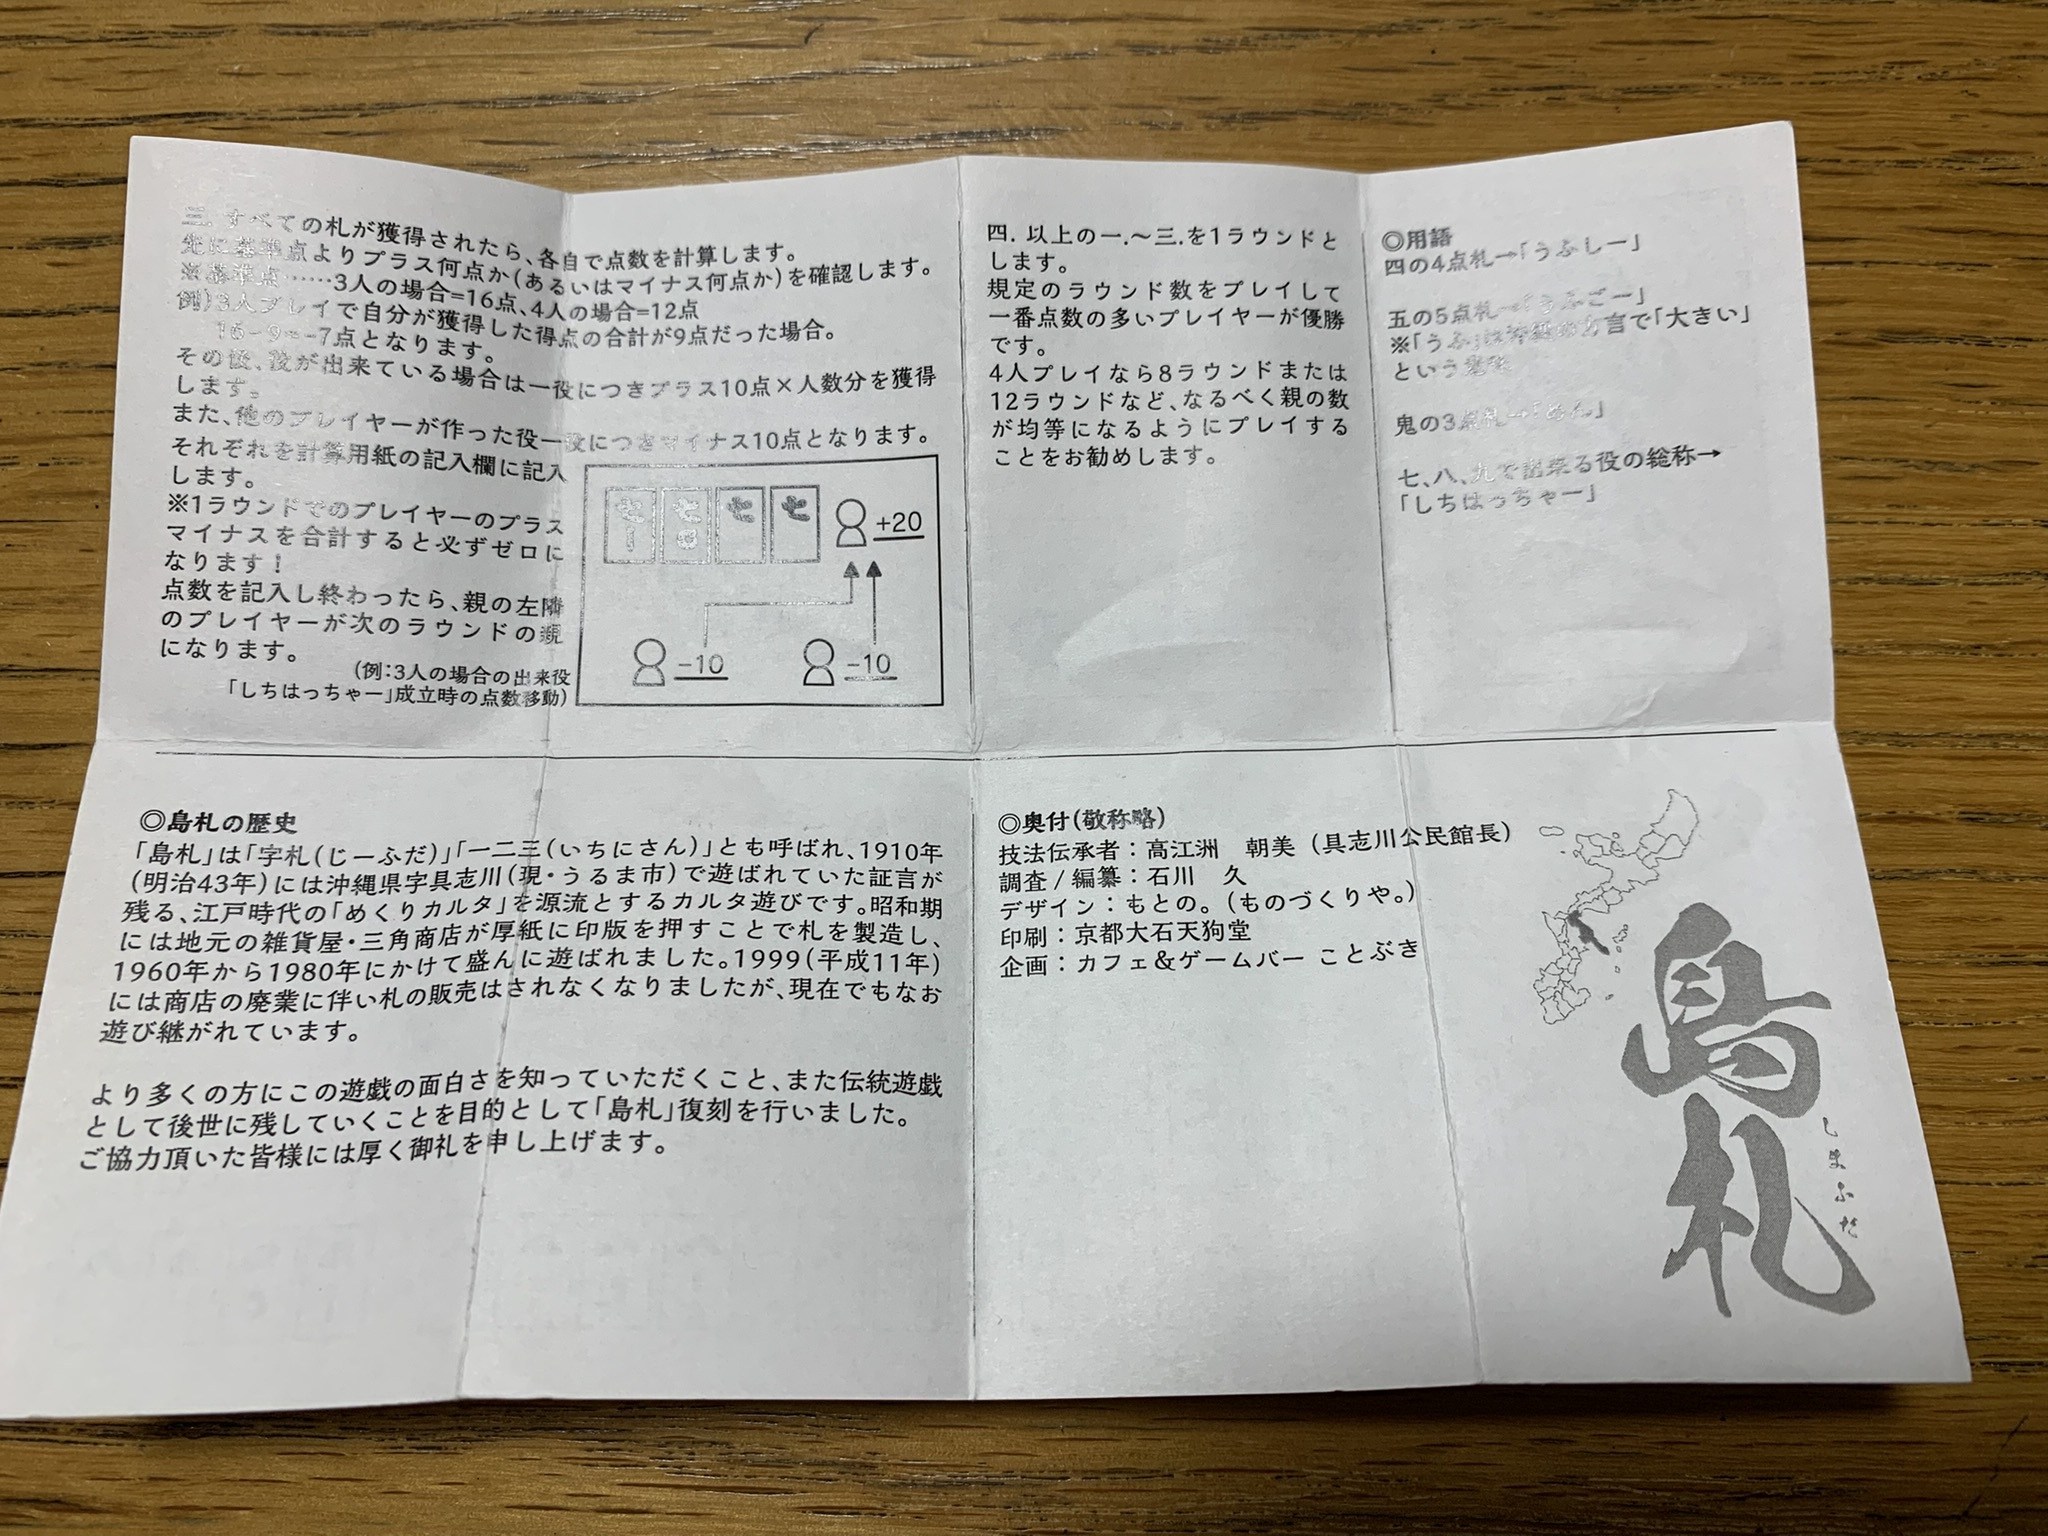 三. すべての札が獲得されたら、各自で点数を計算します。
先に基準点よりプラス何点か(あるいはマイナス何点か)を確認します。
※基準点……3人の場合=16点、4人の場合=12点
例)3人プレイで自分が獲得した得点の合計が9点だった場合。
16-9=-7点となります。
その後、役が出来ている場合は一役につきプラス10点×人数分を獲得
します。
また、他のプレイヤーが作った役一役につきマイナス10点となります。
それぞれを計算用紙の記入欄に記入
します。
※1ラウンドでのプレイヤーのプラス
マイナスを合計すると必ずゼロに
なります!
点数を記入し終わったら、親の左隣
のプレイヤーが次のラウンドの親
になります。
(例:3人の場合の出来役
「しちはっちゃー」成立時の点数移動)
七 七 七 七
+20
-10 -10
四. 以上の一.～三.を1ラウンドと
します。
規定のラウンド数をプレイして
一番点数の多いプレイヤーが優勝
です。
4人プレイなら8ラウンドまたは
12ラウンドなど、なるべく親の数
が均等になるようにプレイする
ことをお勧めします。
◎用語
四の4点札→「うふしー」
五の5点札→「うふごー」
※「うふ」は沖縄の方言で「大きい」
という意味
鬼の3点札→「めん」
七、八、九で出来る役の総称→
「しちはっちゃー」
◎島札の歴史
「島札」は「字札(じーふだ)」「一二三(いちにさん)」とも呼ばれ、1910年
(明治43年)には沖縄県字具志川(現・うるま市)で遊ばれていた証言が
残る、江戸時代の「めくりカルタ」を源流とするカルタ遊びです。昭和期
には地元の雑貨屋・三角商店が厚紙に印版を押すことで札を製造し、
1960年から1980年にかけて盛んに遊ばれました。1999(平成11年)
には商店の廃業に伴い札の販売はされなくなりましたが、現在でもなお
遊び継がれています。
より多くの方にこの遊戯の面白さを知っていただくこと、また伝統遊戯
として後世に残していくことを目的として「島札」復刻を行いました。
ご協力頂いた皆様には厚く御礼を申し上げます。
◎奥付(敬称略)
技法伝承者:高江洲 朝美(具志川公民館長)
調査/編纂:石川 久
デザイン:もとの。(ものづくりや。)
印刷:京都大石天狗堂
企画:カフェ&ゲームバー ことぶき
島札
しまふだ